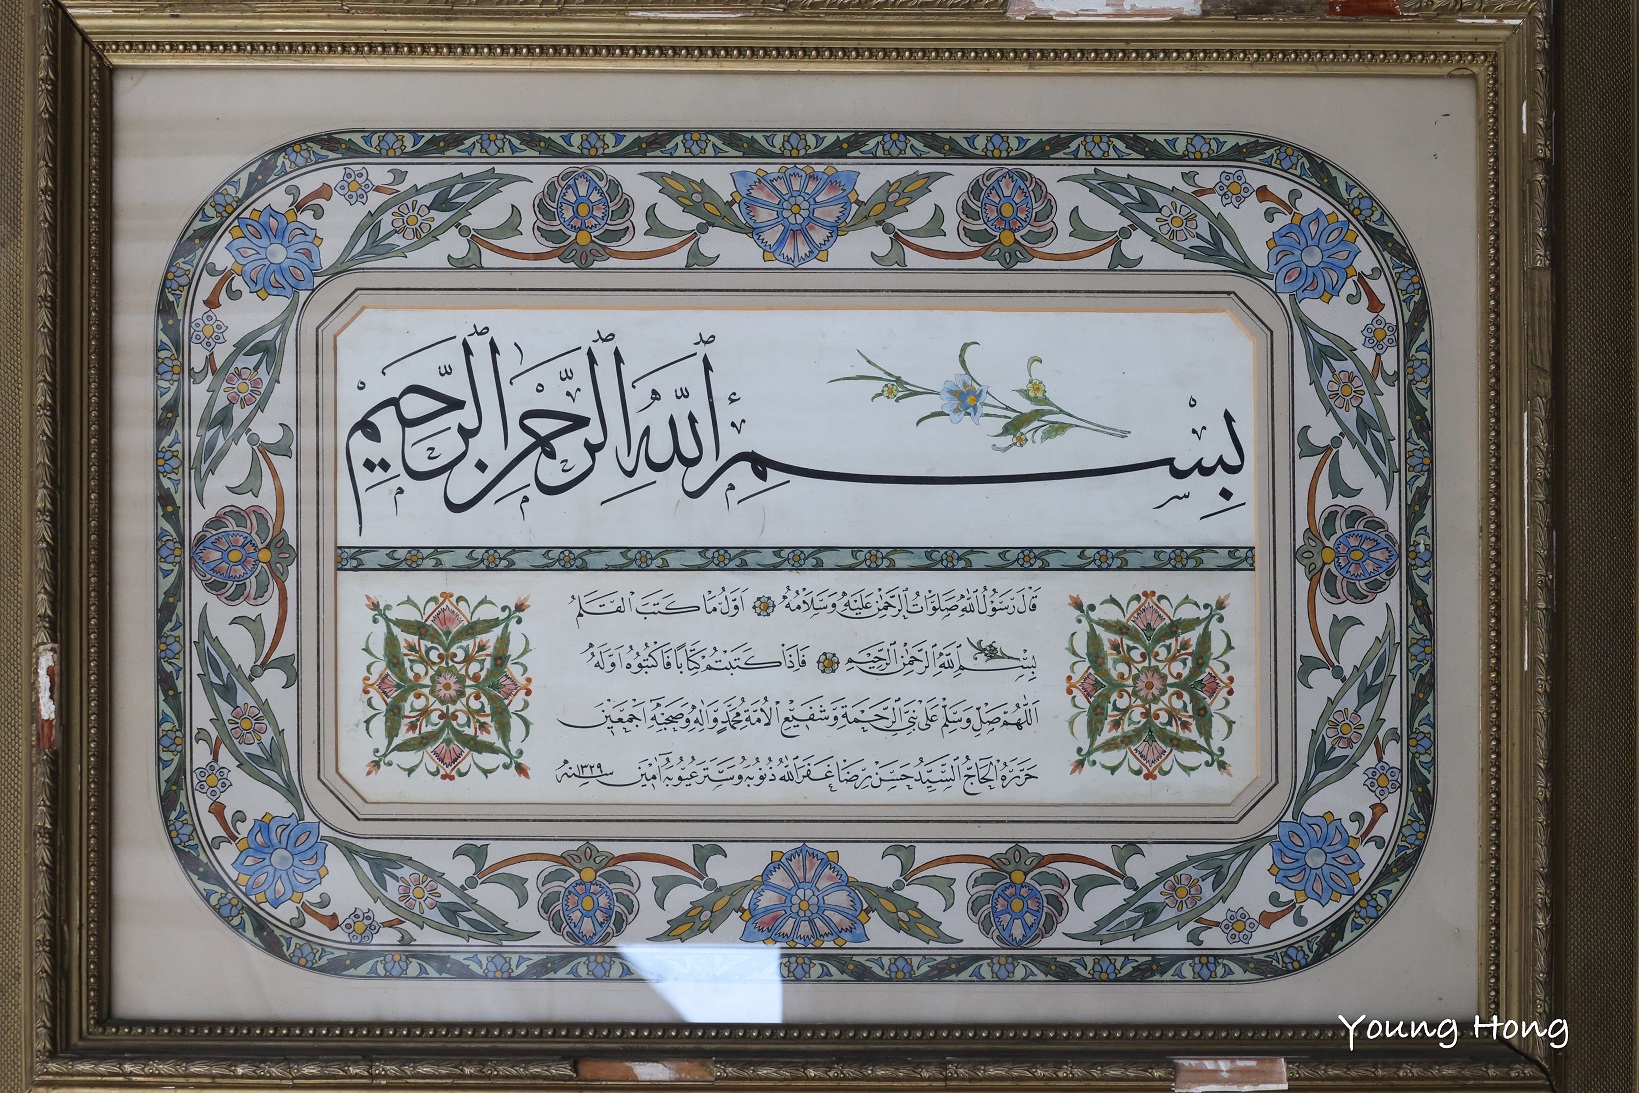 بِسْمِ ٱللّٰهِ ٱلرَّحْمٰنِ ٱلرَّحِيمِ
قَالَ رَسُولُ اللّٰهِ صَلَوَاتُ الرَّحْمٰنِ عَلَيْهِ وَسَلَامُهُ اَوَّلُ مَا كَتَبَ الْقَلَمُ
بِسْمِ اللّٰهِ الرَّحْمٰنِ الرَّحِيمِ فَاِذَا كَتَبْتُمْ كِتَابًا فَاكْتُبُوهُ اَوَّلَهُ
اَللّٰهُمَّ صَلِّ وَسَلِّمْ عَلٰى نَبِيِّ الرَّحْمَةِ وَشَفِيعِ الْاُمَّةِ مُحَمَّدٍ وَّاٰلِهِ وَصَحْبِهِ اَجْمَعِينَ
حَرَّرَهُ الْحَاجُّ السَّيِّدُ حَسَنْ رِضَا غَفَرَ اللّٰهُ ذُنُوبَهُ وَسَتَرَ عُيُوبَهُ آمِينَ سنه ١٣٢٩
Young Hong